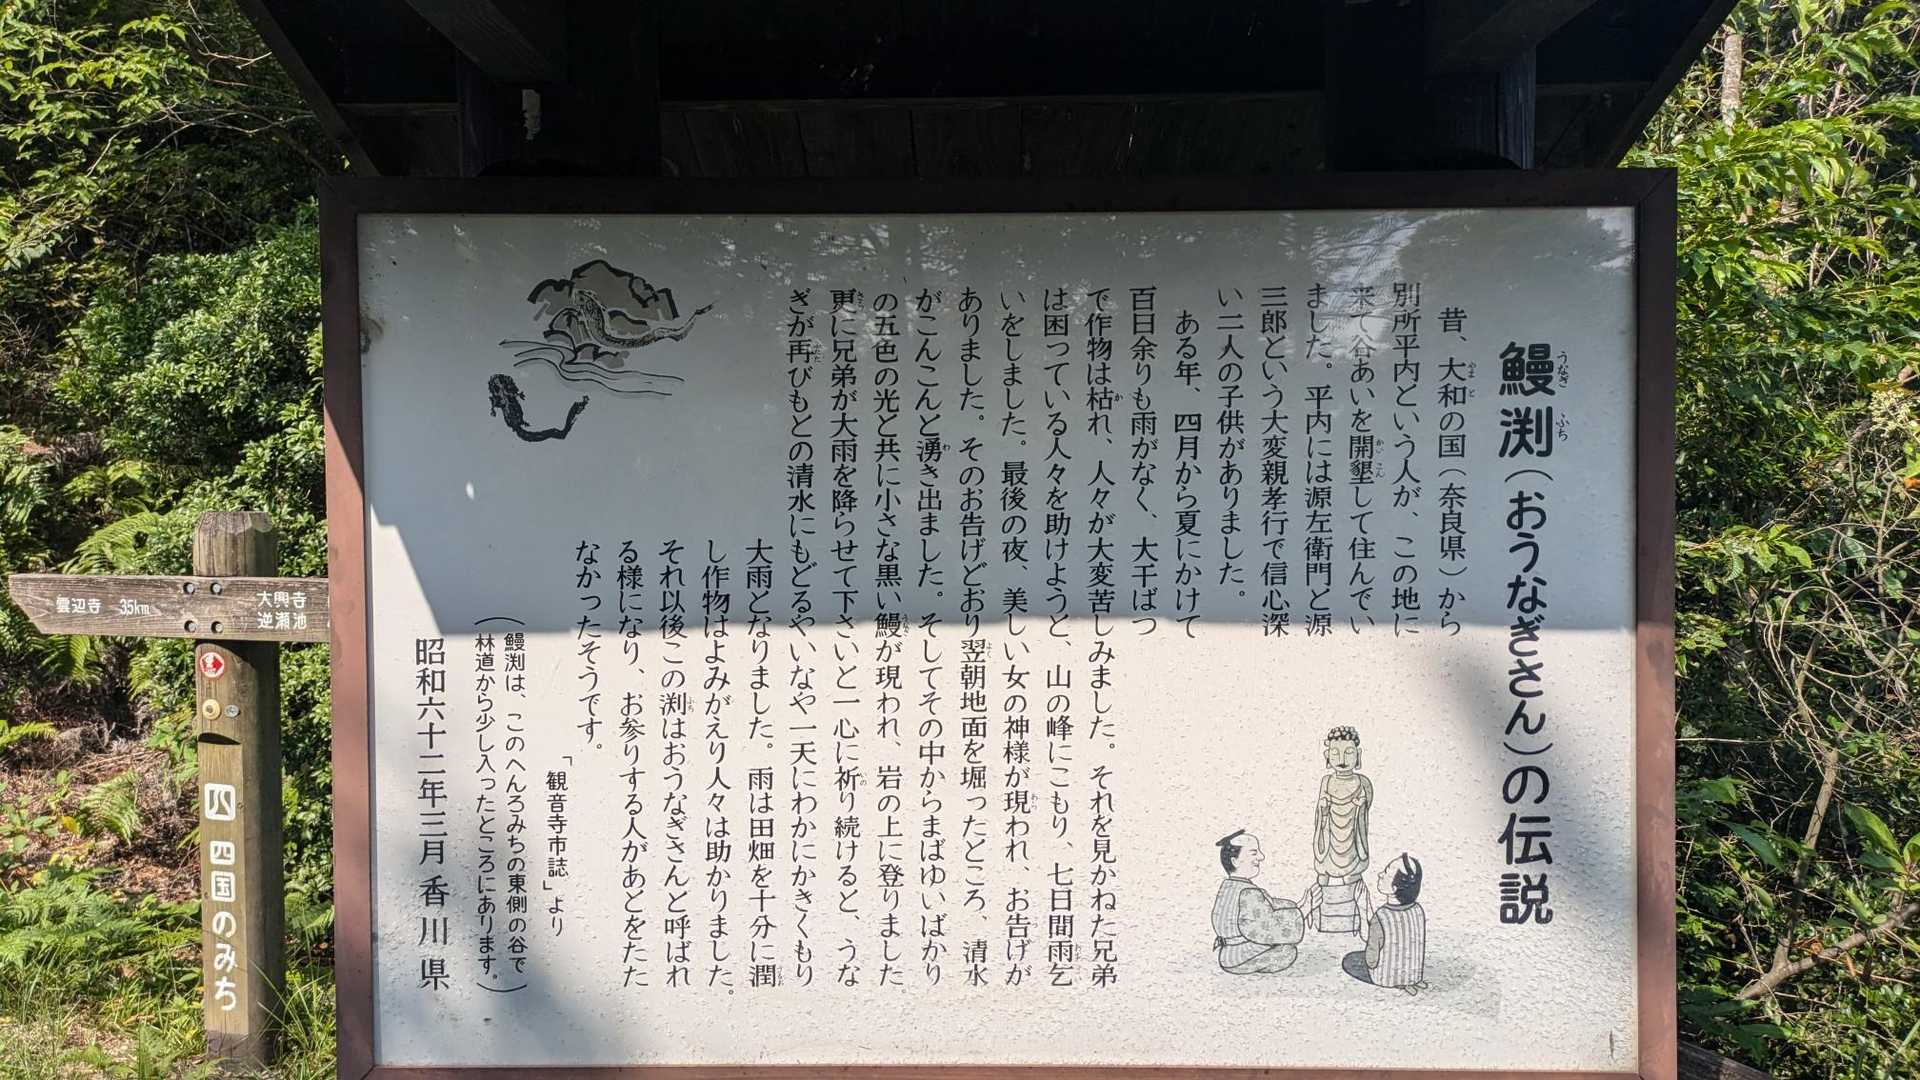 鰻渕(おうなぎさん)の伝説
うなぎ ふち
昔、大和の国(奈良県)から
別所平内という人が、この地に
来て谷あいを開墾して住んでい
ました。平内には源左衛門と源
三郎という大変親孝行で信心深
い二人の子供がありました。
ある年、四月から夏にかけて
百日余りも雨がなく、大干ばつ
で作物は枯れ、人々が大変苦しみました。それを見かねた兄弟
は困っている人々を助けようと、山の峰にこもり、七日間雨乞
いをしました。最後の夜、美しい女の神様が現われ、お告げが
ありました。そのお告げどおり翌朝地面を堀ったところ、清水
がこんこんと湧き出ました。そしてその中からまばゆいばかり
の五色の光と共に小さな黒い鰻が現われ、岩の上に登りました。
更に兄弟が大雨を降らせて下さいと一心に祈り続けると、うな
ぎが再びもとの清水にもどるやいなや一天にわかにかきくもり
大雨となりました。雨は田畑を十分に潤
し作物はよみがえり人々は助かりました。
それ以後この渕はおうなぎさんと呼ばれ
る様になり、お参りする人があとをたた
なかったそうです。
「観音寺市誌」より
(鰻渕は、このへんろみちの東側の谷で
林道から少し入ったところにあります。)
昭和六十二年三月 香川県
雲辺寺 3.5km
大興寺
逆瀬池
四国のみち